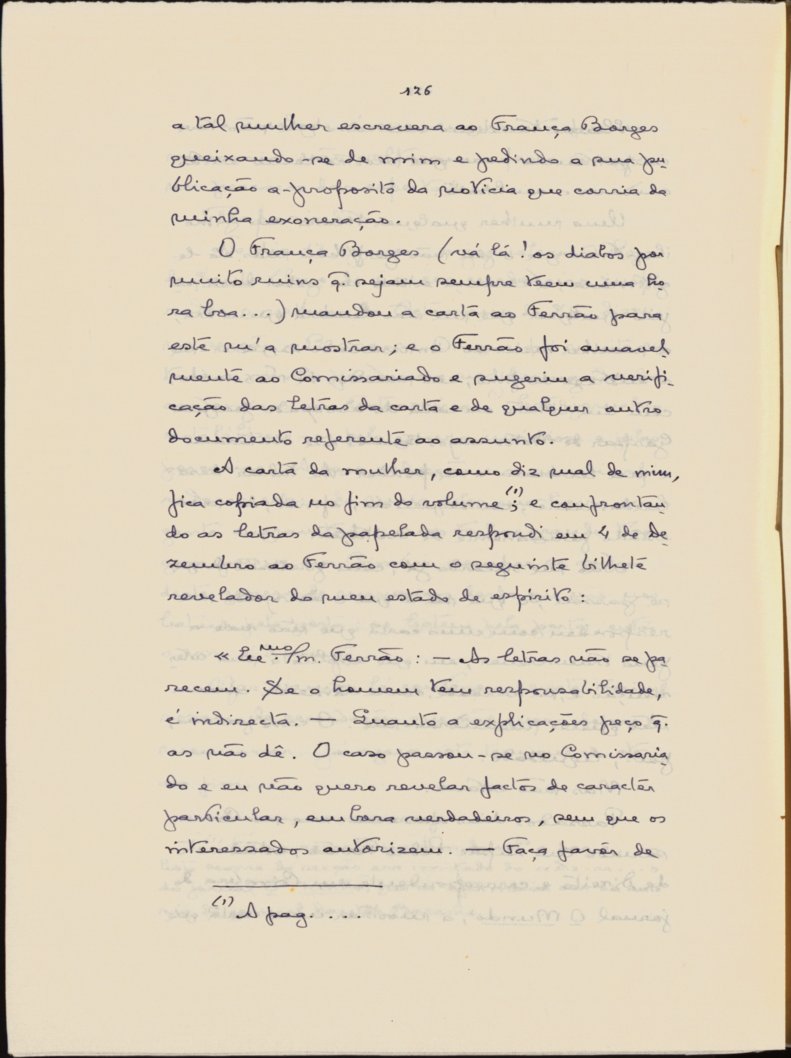 126
a tal mulher escrevera ao França Borges
queixando-se de mim e pedindo a sua pu-
blicação a-proposito da noticia que corria da
minha exoneração.
O França Borges (vá lá! os diabos por
muito ruins q. sejam sempre teem uma ho-
ra boa...) mandou a carta ao Ferrão para
este m'a mostrar; e o Ferrão foi amavel-
mente ao Comissariado e sugeriu a verifi-
cação das letras da carta e de qualquer outro
documento referente ao assunto.
A carta da mulher, como diz mal de mim,
fica copiada no fim do volume (1); e confrontan-
do as letras da papelada respondi em 4 de De-
zembro ao Ferrão com o seguinte bilhete
revelador do meu estado de espírito:
« Ex.mo Sm. Ferrão: — As letras não se pa-
recem. Se o homem tem responsabilidade,
é indirecta. — Quanto a explicações peço q.
as não dê. O caso passou-se no Comissaria-
do e eu não quero revelar factos de caractér
particular, embora verdadeiros, sem que os
interessados autorizem. — Faça favôr de
(1) A pag. ....